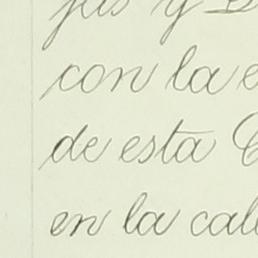 y
con la
de esta
en la cal